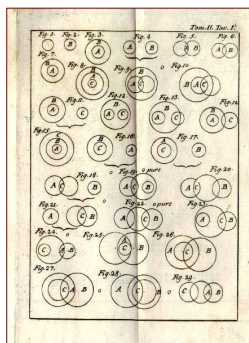 Tom. II. Tav. I.
Fig. 1. Fig. 2. Fig. 3. Fig. 4. Fig. 5. Fig. 6.
A B A B A B
Fig. 7. Fig. 8. Fig. 9. o Fig. 10.
B A B A C B A C B A C
Fig. 11. Fig. 12. Fig. 13. Fig. 14.
B A C B A C A B C A C
Fig. 15. Fig. 16. Fig. 17.
C B A A C B A C B
Fig. 18. Fig. 19. o pure Fig. 20.
A C B A C B A C B
Fig. 21. Fig. 22. o pure Fig. 23.
A C B A C B A C B
Fig. 24. o Fig. 25. Fig. 26.
C A B A C B A C B
Fig. 27. Fig. 28. Fig. 29.
C A B o A C B o C A B